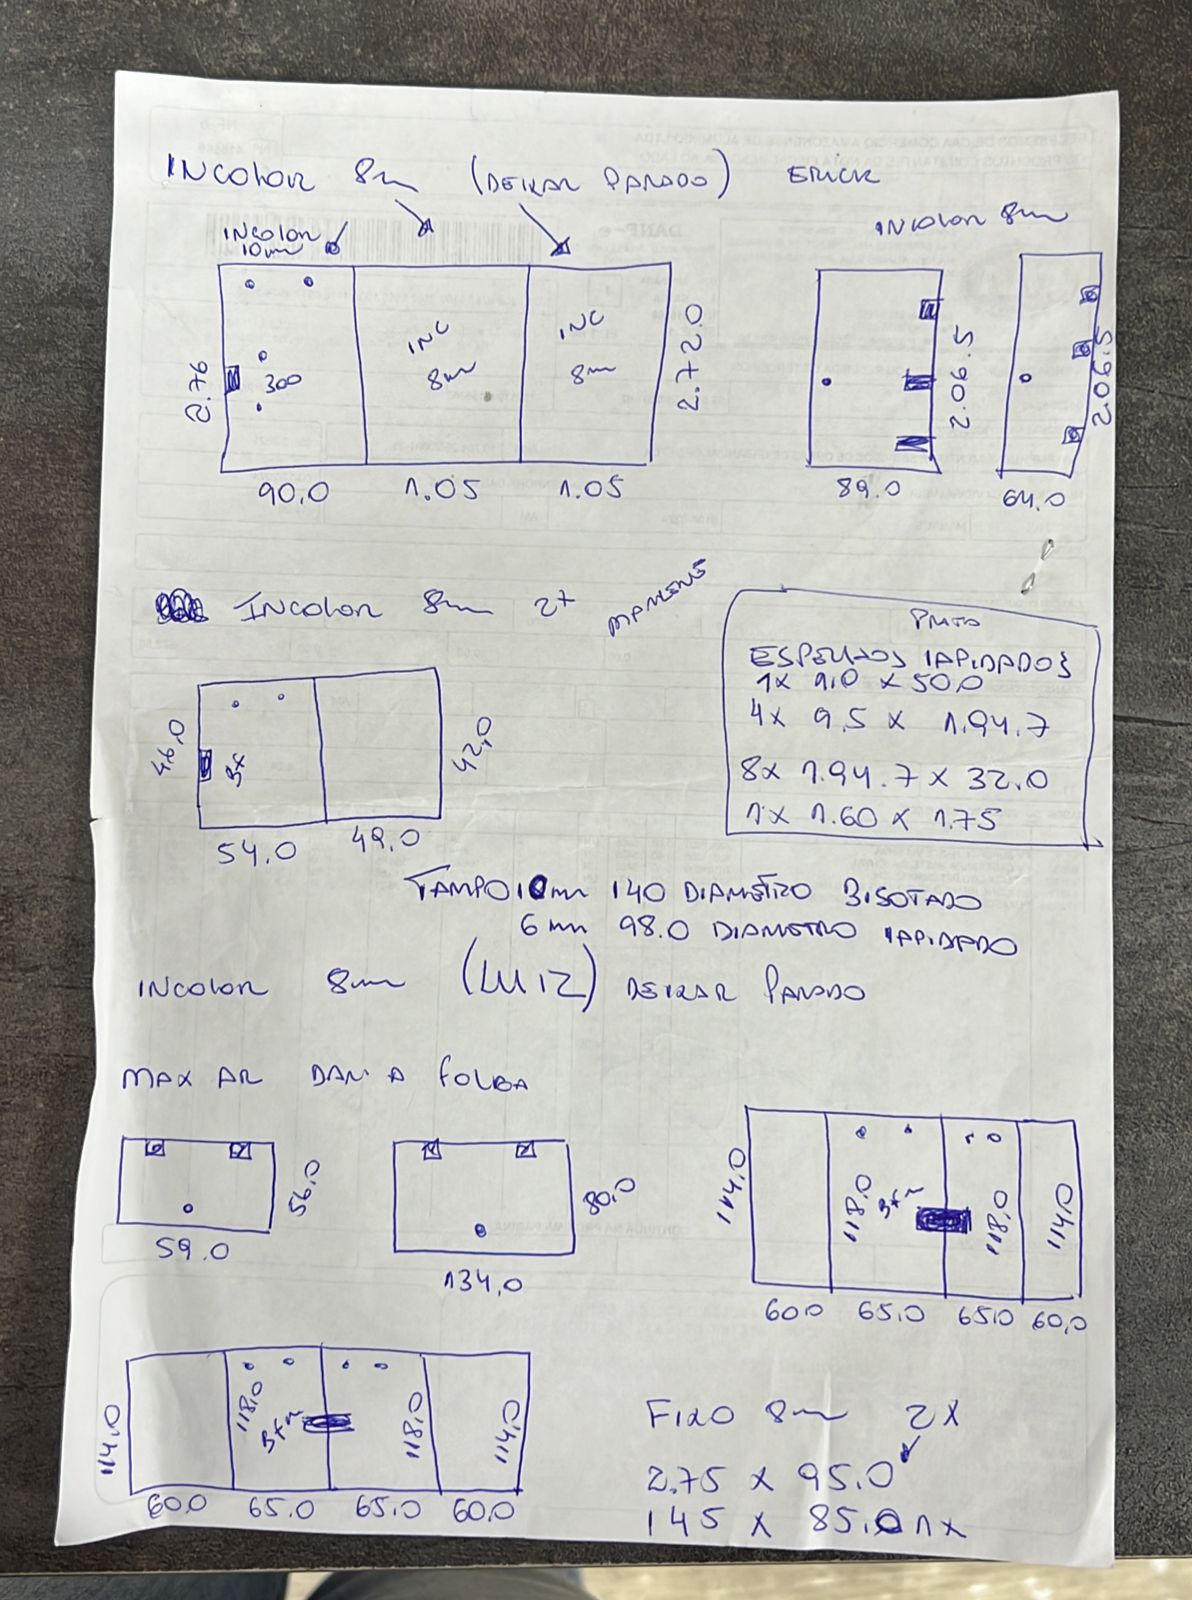 INCOLOR 8m (DEIXAR PARADO) ERICK
INCOLOR
10m
INC
8m
INC
8m
2.76
300
2.72.0
90.0 1.05 1.05
INCOLOR 8m
2.06.5
2.06.5
89.0 64.0
INCOLOR 8m 2x
46,0
3x
42,0
54,0 49,0
PRATA
ESPELHOS LAPIDADOS
1x 9.0 x 50,0
4x 9,5 x 1.94.7
8x 1.94.7 x 32.0
1x 1.60 x 1.75
TAMPO 10m 140 DIAMETRO BISOTADO
6m 98.0 DIAMETRO LAPIDADO
INCOLOR 8m (LUIZ) DEIXAR PARADO
MAX AR DAR A FOLGA
56,0
59.0
80,0
134,0
114,0
118,0
3f
118,0
114,0
60,0 65,0 65,0 60,0
114,0
118,0
3f
118,0
114,0
60,0 65,0 65,0 60,0
FIXO 8m 2X
2.75 x 95.0
145 x 85.0 1x